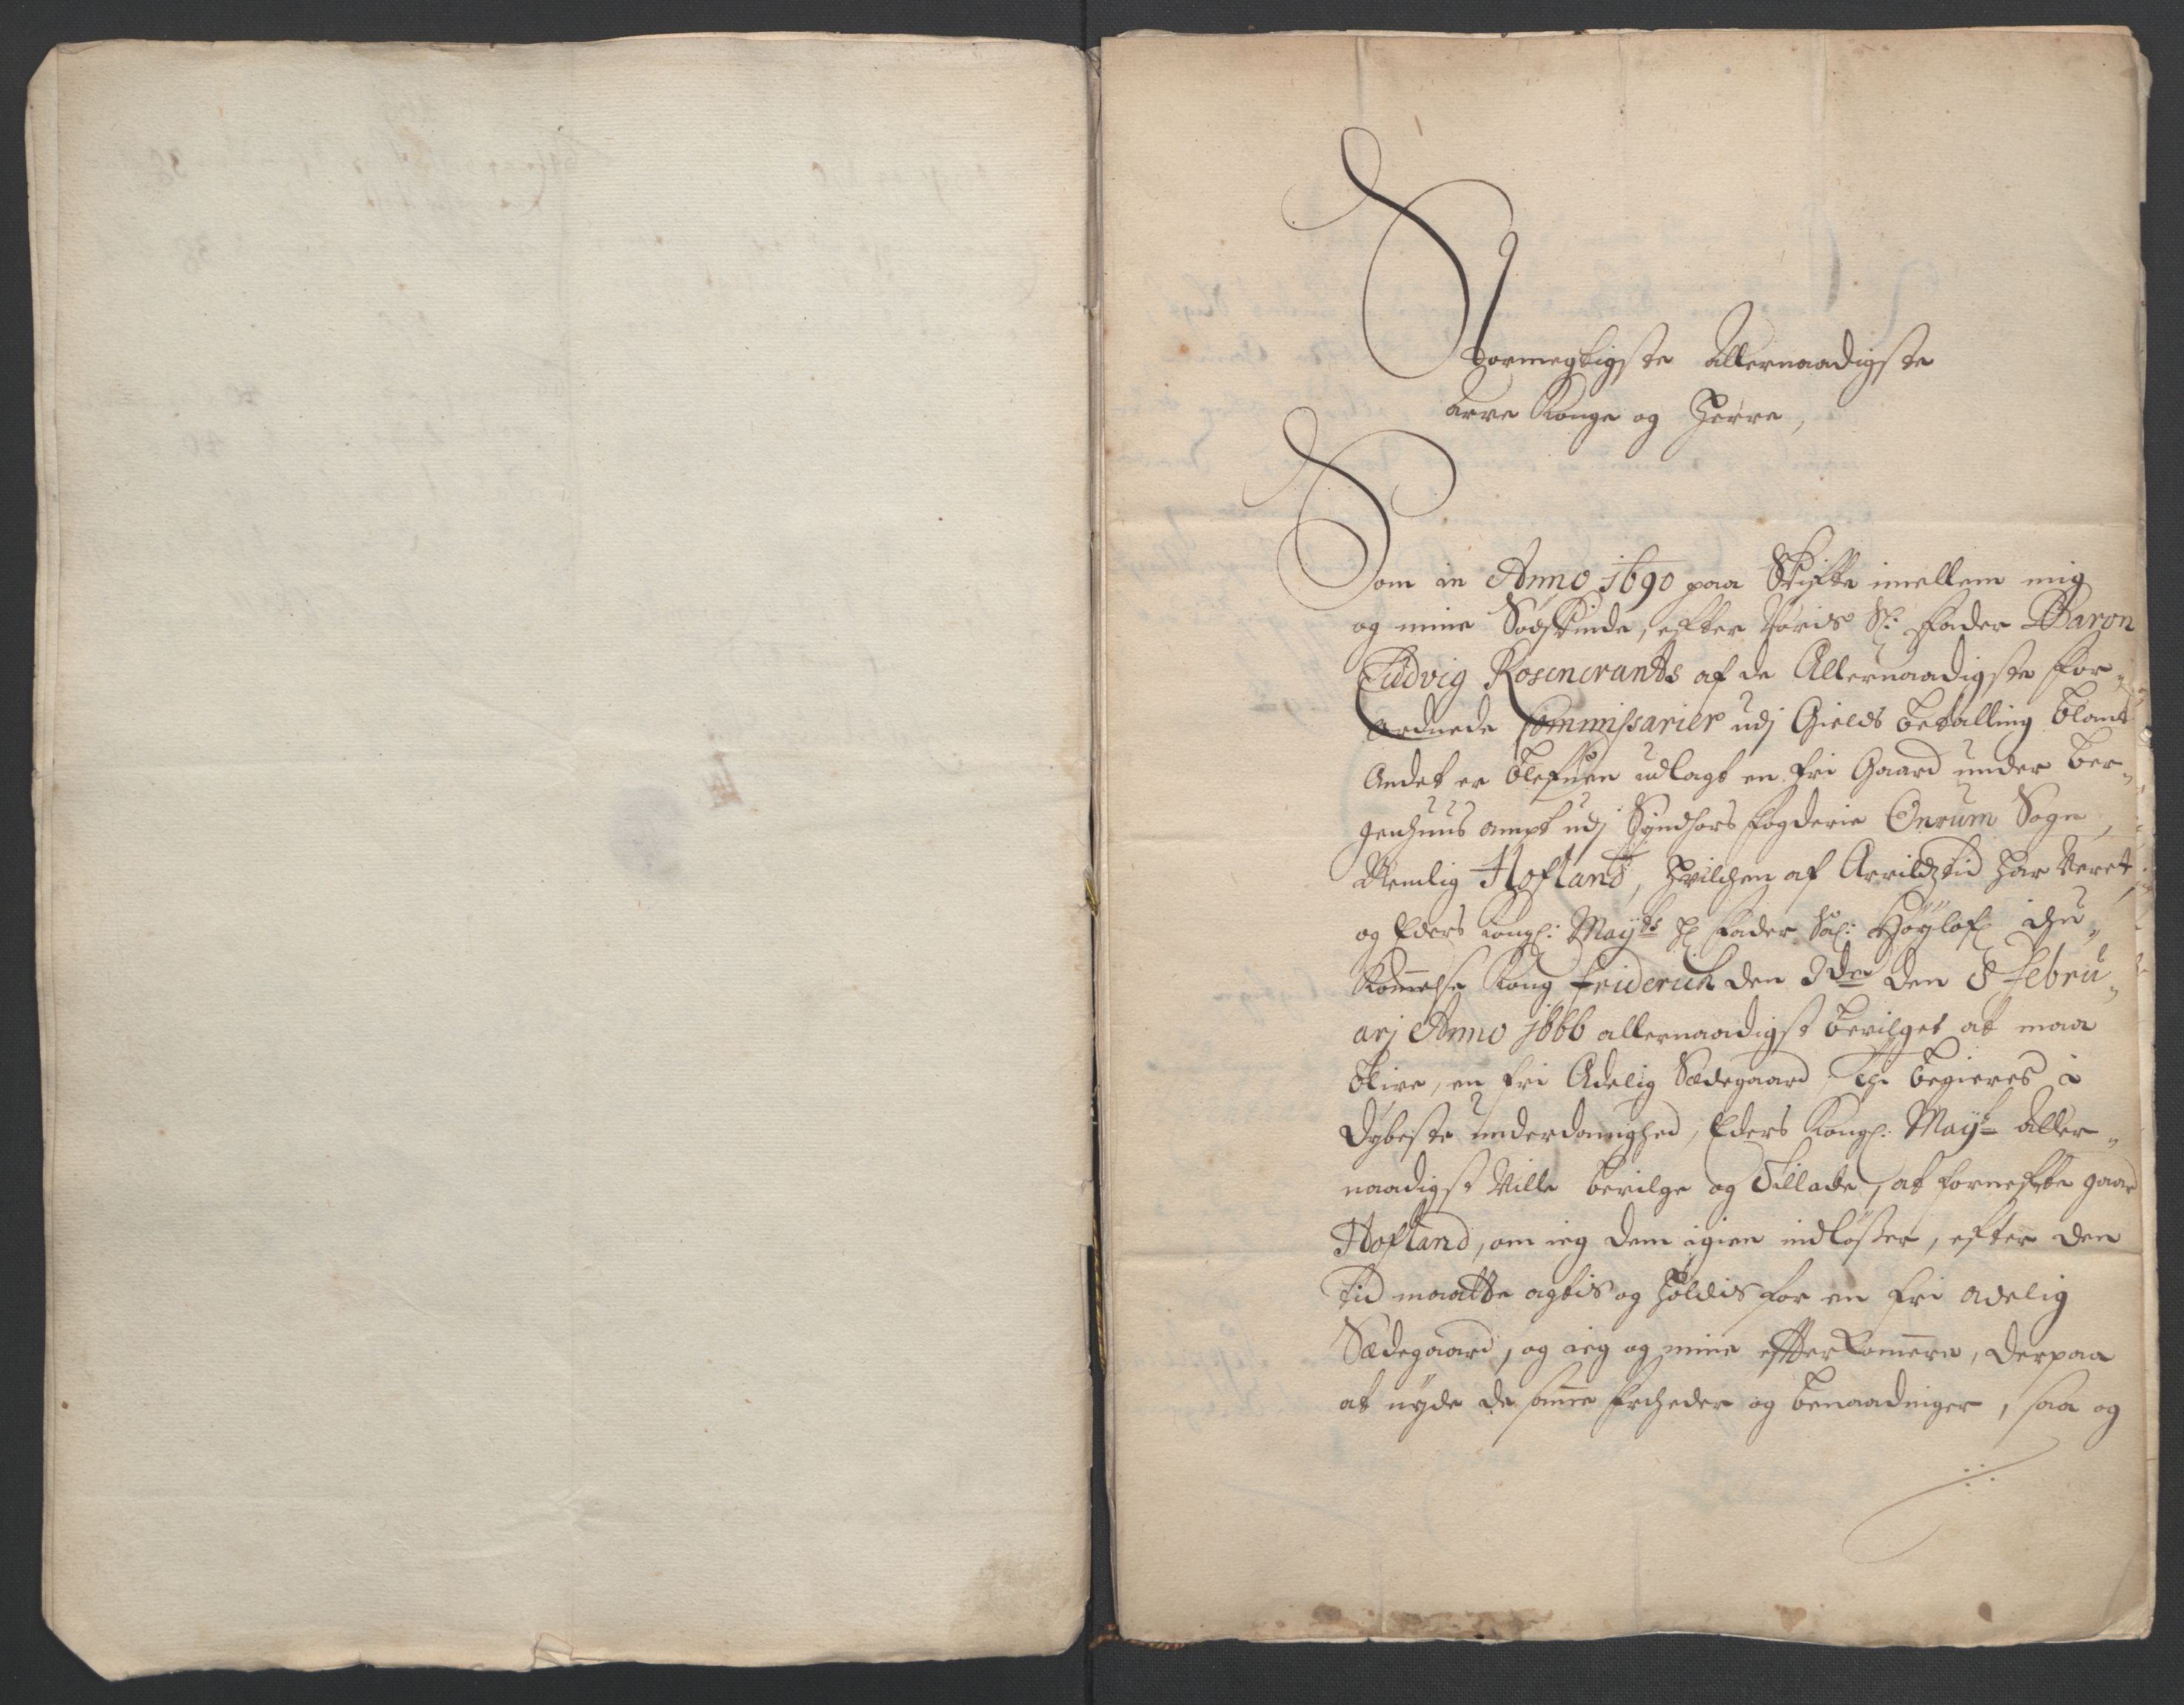 Stormegtigste Allernaadigste
Arve Konge og Herre,
Som in Anno 1690 paa Skifte imellem mig
og mine Södskinde, efter Voris Sl: Fader Baron
Ludvig Rosencrantz af de Allernaadigste for„
ordnede Commissarier udj Gields betalling blant
Andet er blefuen udlagt en fri Gaard under Ber„
genhuus ampt udj Syndhors fogderie Onrum Sogn,
Nemlig Hofland, hvilchen af Arrildztid har veret,
og Eders Kongl: Mayts hl fader Sal: Höyloflig ihu„
kommelse Kong Friderich den 3de den 8 Febru„
arj Anno 1666 allernaadigst bevilget at maa
blive, en fri Adelig Sædegaard, Thj begieres i
dybeste underdanighed, Eders Kongl: Mayt aller„
naadigst Ville bevilge og Tillade, at fornefnte gaard
Hofland, om ieg dem igien indlöser, efter den
tid maatte agtis og holdis for en fri adelig
Sædegaard, og ieg og mine efterkommere, derpaa
at nyde de samme friheder og benaadninger, saa og